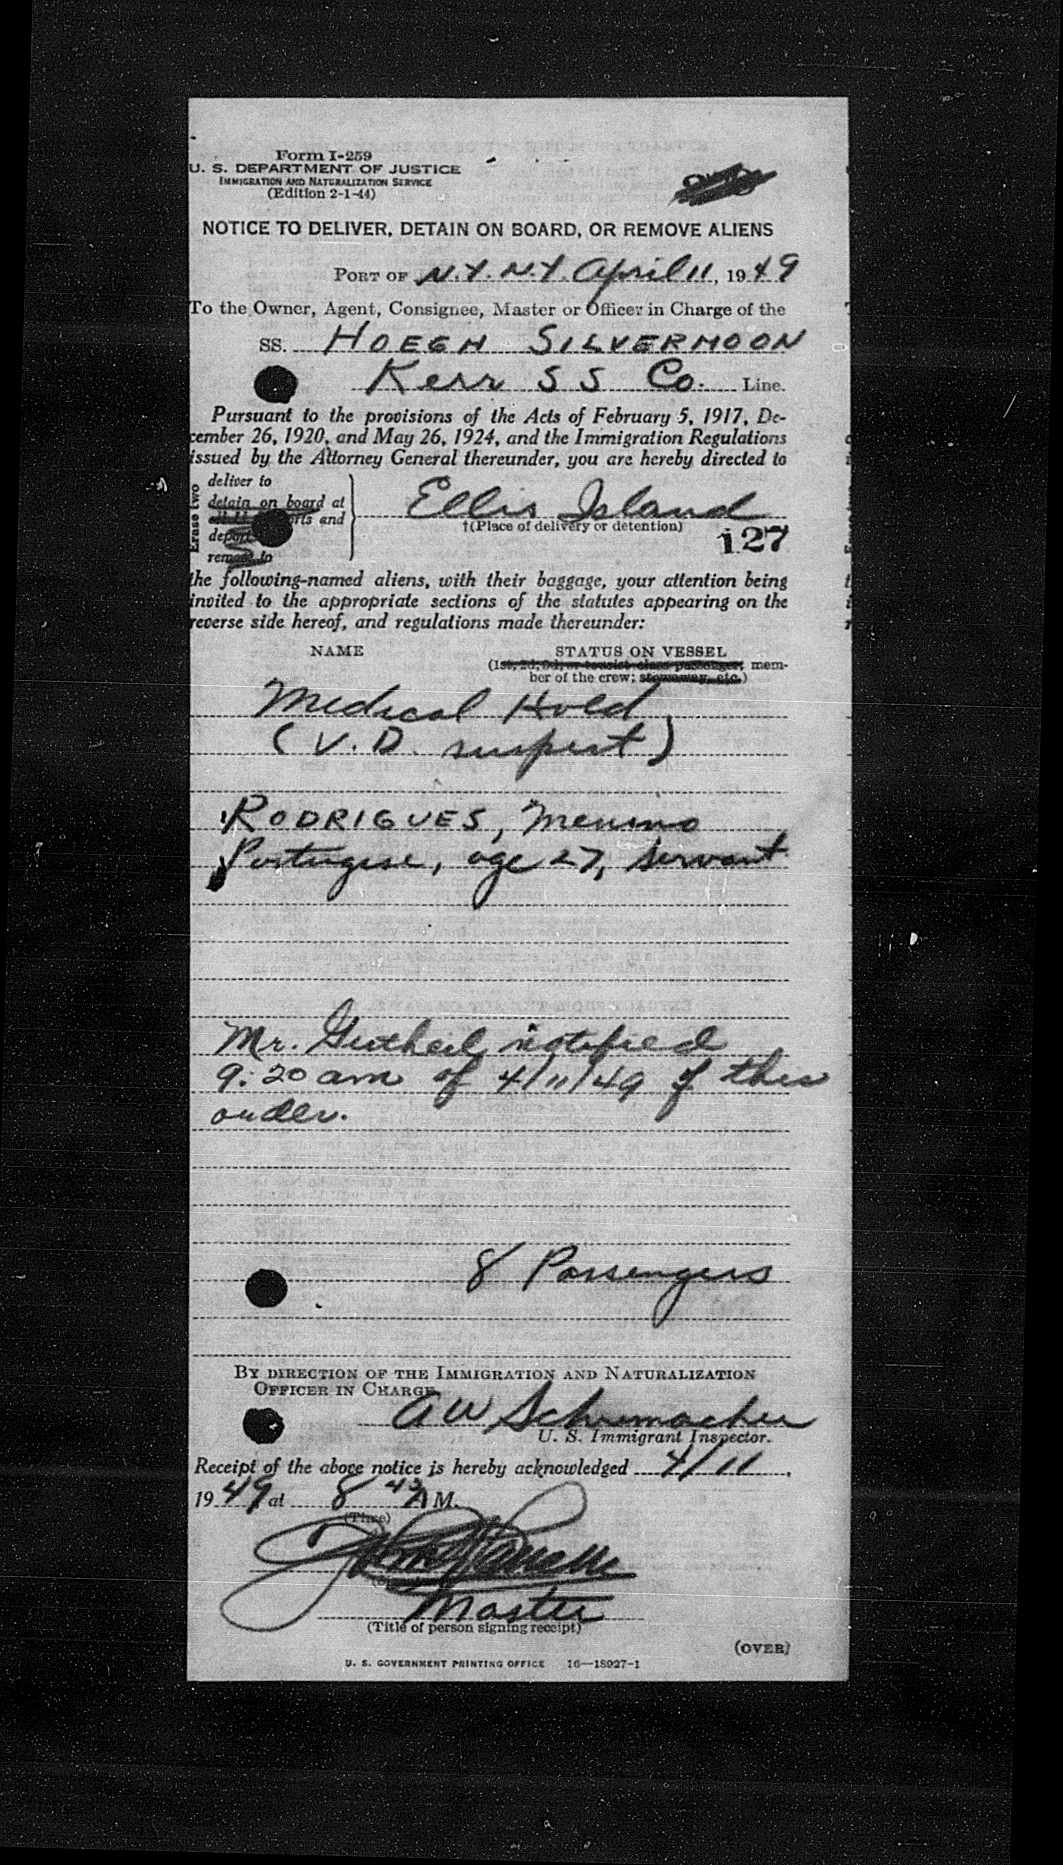 Form I-259
U. S. DEPARTMENT OF JUSTICE
IMMIGRATION AND NATURALIZATION SERVICE
(Edition 2-1-44)
NOTICE TO DELIVER, DETAIN ON BOARD, OR REMOVE ALIENS
PORT OF N.Y. N.Y. April 11, 1949
To the Owner, Agent, Consignee, Master or Officer in Charge of the
SS. HOEGH SILVERMOON
Kerr S S Co. Line.
Pursuant to the provisions of the Acts of February 5, 1917, De-
cember 26, 1920, and May 26, 1924, and the Immigration Regulations
issued by the Attorney General thereunder, you are hereby directed to
Erase two
deliver to
detain on board at
and
remove to
Ellis Island
†(Place of delivery or detention)
127
the following-named aliens, with their baggage, your attention being
invited to the appropriate sections of the statutes appearing on the
reverse side hereof, and regulations made thereunder:
NAME STATUS ON VESSEL
(1st, 2d, 3d, or tourist class passenger; mem-
ber of the crew; stowaway, etc.)
Medical Hold
(V. D. suspect)
RODRIGUES, Menino
Portugese, age 27, servant
Mr. Gutheil notified
9:20 am of 4/11/49 of this
order.
8 Passengers
BY DIRECTION OF THE IMMIGRATION AND NATURALIZATION
OFFICER IN CHARGE
A W Schumacher
U. S. Immigrant Inspector.
Receipt of the above notice is hereby acknowledged 4/11,
1949 at 8 45 A M.
(Time)
Master
(Title of person signing receipt)
(OVER)
U. S. GOVERNMENT PRINTING OFFICE 16—18927-1